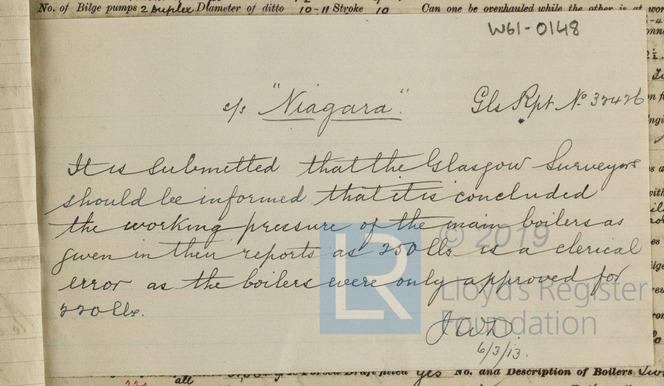 No. of Bilge pumps 2 duplex Diameter of ditto 10-11 Stroke 10 Can one be overhauled while the other is at
W61-0148
s/s "Niagara" Gls Rpt No 32426
It is submitted that the Glasgow Surveyors
should be informed that it is concluded
the working pressure of the main boilers as
given in their reports as 250 lbs is a clerical
error as the boilers were only approved for
220 lbs.
6/3/13.
© 2019
Lloyd's Register
Foundation
LR
Forced Draft fitted yes No. and Description of Boilers
all